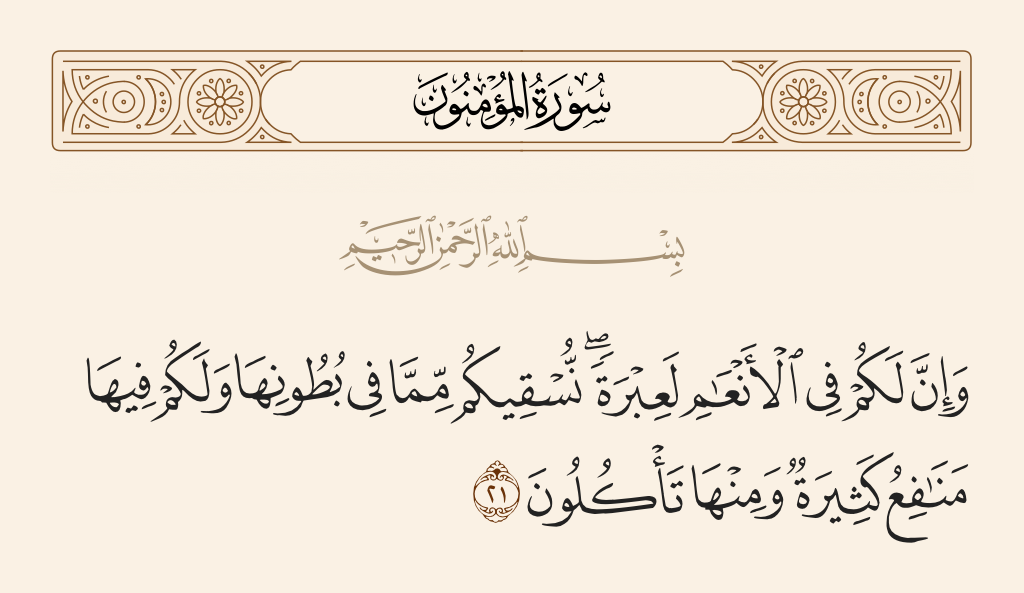 سُورَةُ المُؤْمِنُونَ
بِسْمِ ٱللَّهِ ٱلرَّحْمَٰنِ ٱلرَّحِيمِ
وَإِنَّ لَكُمْ فِى ٱلْأَنْعَٰمِ لَعِبْرَةًۖ نُّسْقِيكُم مِّمَّا فِى بُطُونِهَا وَلَكُمْ فِيهَا
مَنَٰفِعُ كَثِيرَةٌ وَمِنْهَا تَأْكُلُونَ ٢١